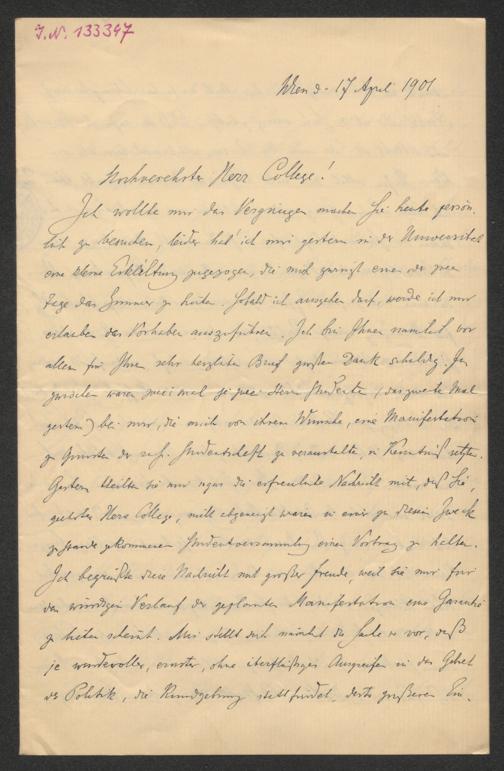 J.N. 133347
Wien d. 17 April 1901
Hochverehrter Herr College!
Ich wollte mir das Vergnügen machen Sie heute persön-
lich zu besuchen, leider hab' ich mir gestern in der Universität
eine kleine Erkältung zugezogen, die mich zwingt einen oder zwei
Tage das Zimmer zu hüten. Sobald ich ausgehen darf, werde ich mir
erlauben das Vorhaben auszuführen. Ich bin Ihnen nämlich vor
allem für Ihren sehr herzlichen Brief großen Dank schuldig. In-
zwischen waren zweimal je zwei Herrn Studenten (das zweite Mal
gestern) bei mir, die mich von ihrem Wunsche, eine Manifestation
zu Gunsten der russ. Studentschaft zu veranstalten, in Kenntniß setzten.
Gestern theilten sie mir sogar die erfreuliche Nachricht mit, daß Sie,
geehrter Herr College, nicht abgeneigt wären in einer zu diesem Zwecke
zustande gekommenen Studentenversammlung einen Vortrag zu halten.
Ich begrüßte diese Nachricht mit großer Freude, weil sie mir für
den würdigen Verlauf der geplanten Manifestation eine Garantie
zu bieten scheint. Mir stellt sich nämlich die Sache so vor, daß
je würdevoller, ernster, ohne überflüßiges Ausgreifen in das Gebiet
der Politik, die Kundgebung stattfindet, desto größeren Ein-